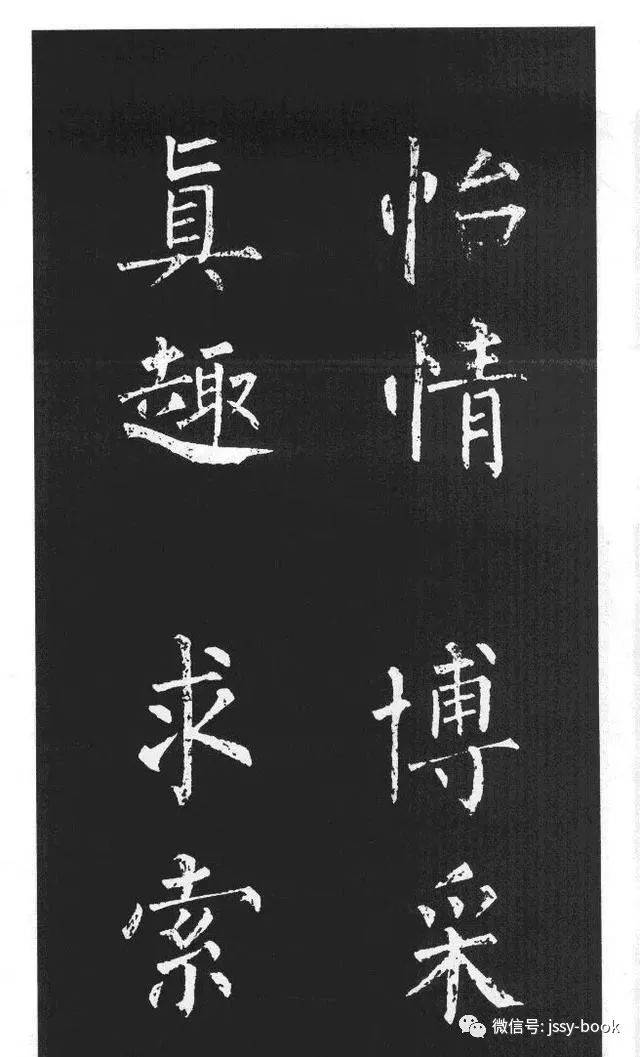 怡情 博采
眞趣 求索
微信号: jssy-book